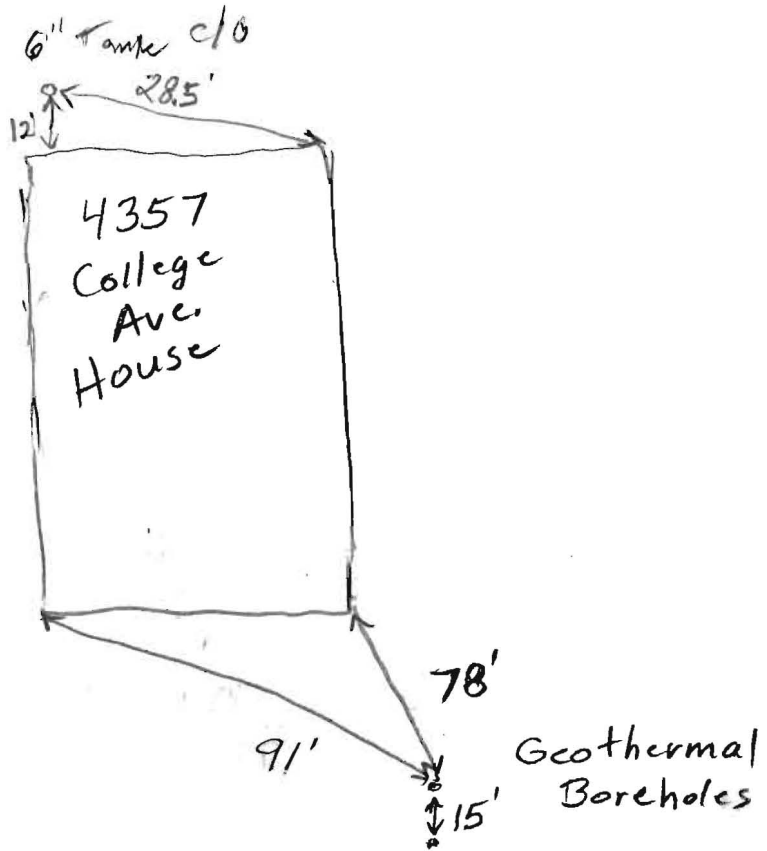 6" Tank c/o
28.5'
12'
4357
College
Ave.
House
78'
91'
Geothermal
Boreholes
15'